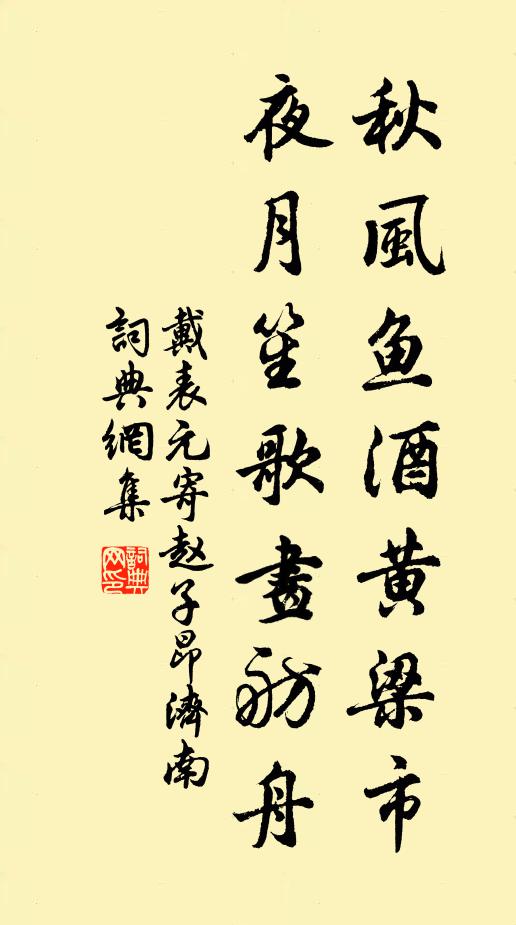 秋風魚酒黄梁市
夜月笙歌畫舫舟
戴表元寄赵子昂濟南
詞典網集
詞典网印